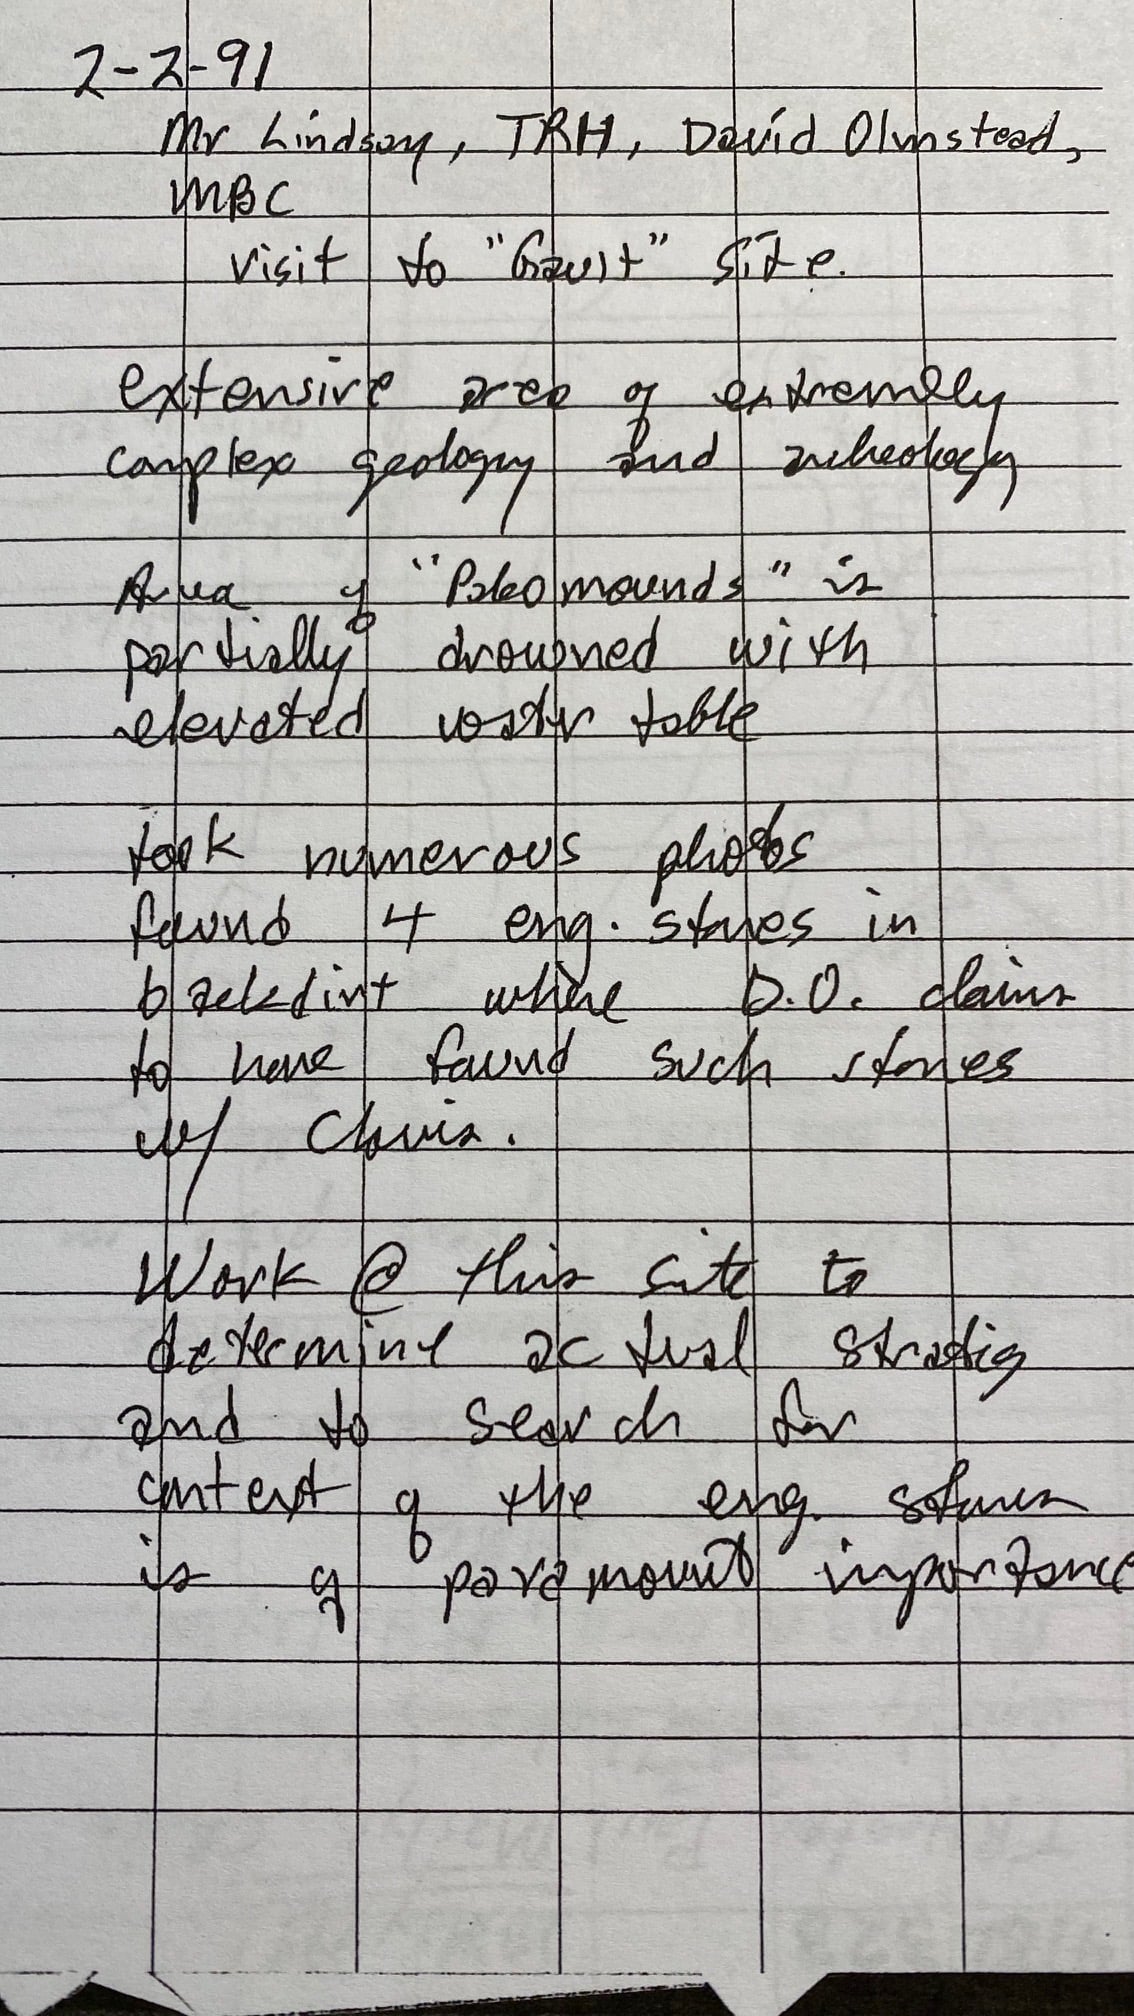 2-2-91
Mr Lindsay, TRH, David Olmstead,
MBC
visit to "Gault" site.
extensive area of extremely
complex geology and archeology
Area of "Paleo mounds" is
partially drowned with
elevated water table
took numerous photos
found 4 eng. stones in
backdirt where D.O. claims
to have found such stones
w/ Clovis.
Work @ this site to
determine actual stratig
and to search for
context of the eng. stones
is of paramount importance